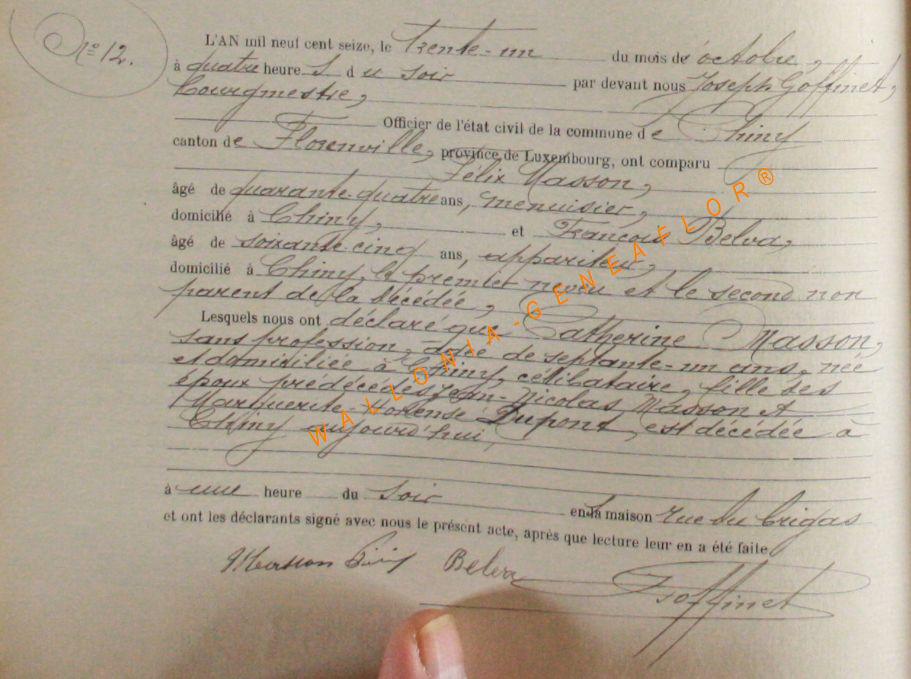 N° 12.
L'AN mil neuf cent seize, le trente-un du mois de octobre,
à quatre heures du soir par devant nous Joseph Goffinet,
bourgmestre,
Officier de l'état civil de la commune de Chiny
canton de Florenville, province de Luxembourg, ont comparu
Félix Masson,
âgé de quarante-quatre ans, menuisier,
domicilié à Chiny, et François Belva,
âgé de soixante-cinq ans, appariteur,
domicilié à Chiny, le premier neveu et le second non
parent de la décédée,
Lesquels nous ont déclaré que Catherine Masson,
sans profession, âgée de septante-un ans, née
et domiciliée à Chiny, célibataire, fille des
époux prédécédés Jean-Nicolas Masson et
Marguerite-Hortense Dupont, est décédée à
Chiny aujourd'hui,
à une heure du soir en la maison rue du
et ont les déclarants signé avec nous le présent acte, après que lecture leur en a été faite
Masson Félix Belva JGoffinet
WALLONIA-GENEAFLOR®